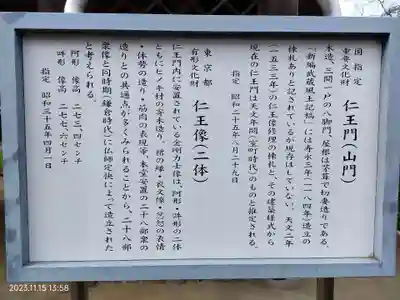 国指定
重要文化財
仁王門(山門)
木造、三間一戸の八脚門、屋根は茅葺で切妻造りである。
『新編武蔵風土記稿』には寿永三年(一一八四年)造立の
棟札ありと記されているが現存はしていない。天文二年
(一五三三年)の仁王像修理の棟札と、その建築様式から
現在の仁王門は天文年間(室町時代)のものと推定される。
指定 昭和二十五年八月二十九日
東京都
有形文化財
仁王像(二体)
仁王門内に安置されている金剛力士像は、阿形・吽形の二体
ともにヒノキ材の寄木造り。裙の縁・衣文線・忿怒の表情
・体勢の造り・筋肉の表現等、本堂安置の二十八部衆の
造りとの共通点が多くみられることから、二十八部
衆像と同時期(鎌倉時代)に仏師定快によって造立された
と考えられる。
阿形 像高 二七三、四センチ
吽形 像高 二七七、六センチ
指定 昭和三十五年四月一日
2023.11.15 13:58